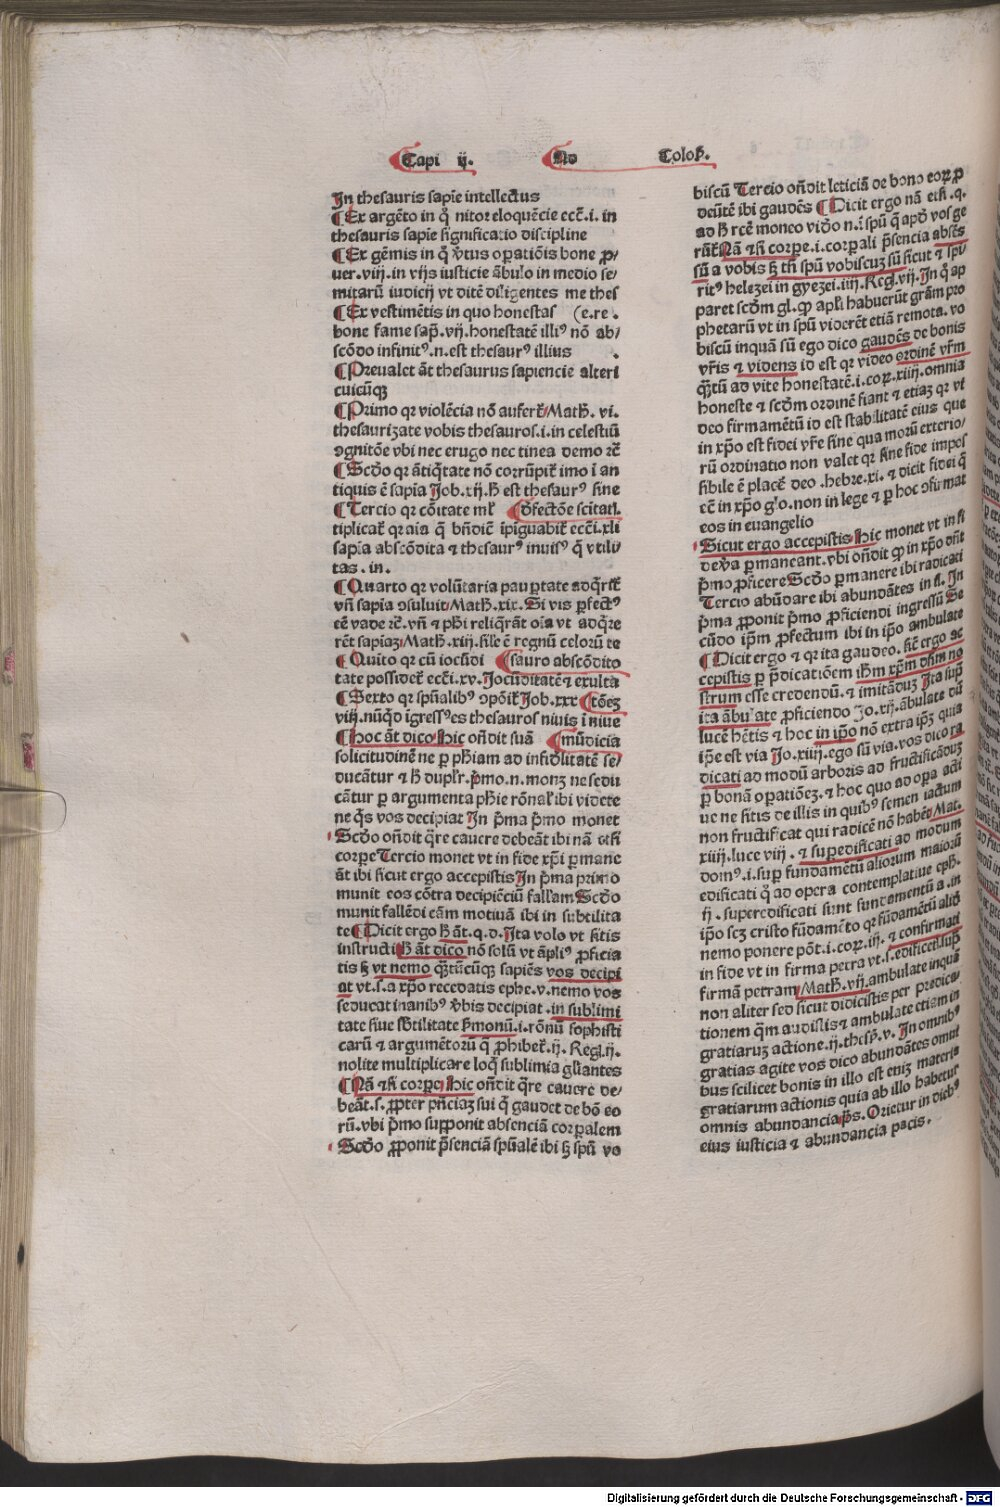 Capi ij. Ad Coloß.
In thesauris sapiē intellectus
¶Ex argēto in q̄ nitor eloquēcie eccē.i. in
thesauris sapie significatio discipline
¶Ex gēmis in q̄ v̄tus oꝑatiōis bone ꝓ/
uer.viij.in vijs iusticie ābulo in medio se/
mitarū iudicij vt ditē diligentes me thes
¶Ex vestimētis in quo honestas (e.re.
bone fame sap̄.vij.honestatē illiꝰ nō ab/
scōdo infinitꝰ.n.est thesaurꝰ illius
¶Preualet āt thesaurus sapiencie alteri
cuicūqꝫ
¶Primo qr violēcia nō aufert̄ Matħ. vi.
thesaurizate vobis thesauros.i.in celestiū
ↄgnitōe vbi nec erugo nec tinea demo rē
¶Scd̄o qr ātiq̄tate nō corrūpit̄ imo ī an
tiquis ē sapīa Job.xij.ħ est thesaurꝰ sine
¶Tercio qr cōitate ml̄ (ↄfectōe scitati.
tiplicat̄ qr aīa q̄ bn̄dic̄ īpīguabit̄ eccī.xli
sapīa abscōdita ⁊ thesaurꝰ inuisꝰ q̄ vtili
tas.in.
¶Quarto qr volūtaria pauꝑtate adq̄rit̄
vn̄ sapīa ↄsuluit Matħ.xix. Si vis ꝑfectꝰ
eē vade rē. vn̄ ⁊ pħi reliq̄rāt oīa vt adq̄re
rēt sapiaꝫ Matħ.xiij.sile ē regnū celorū te
¶Quīto qr cū iocūdi (sauro abscōdito
tate possidet̄ eccī.xv.Jocūditatē ⁊ exulta
¶Sexto qr spūalibꝰ ↄpōit̄ Job.xxx (tōeꝫ
viij.nūq̄d īgressꝰes thesauros niuis ī niue
¶Hoc āt dico Hic on̄dit suā (mūdicia
solicitudinē ne ꝑ pħiam ad infid̄litatē se/
ducātur ⁊ ħ dupl̄r.p̄mo.n.monꝫ ne sedu
cātur ꝑ argumenta pħie rōnal̄ ibi videte
ne q̄s vos decipiat In p̄ma p̄mo monet
Scd̄o on̄dit q̄re cauere debeāt ibi nā etsi
corꝑe Tercio monet vt in fide xp̄i ꝑmane
āt ibi sicut ergo accepistis In p̄ma primo
munit eos cōtra decipiēciū fall̄am Scd̄o
munit fallēdi cām motiuā ibi in subtilita
te ¶Dicit ergo ħ āt.q.d.Ita volo vt sitis
instructi ħ āt dico nō solū vt āpliꝰ ꝓficia
tis ꝫ vt nemo q̄ꝫtūcūqꝫ sapiēs vos decipi
at vt.s.a xp̄o recedatis ephe.v.nemo vos
seducat inanibꝰ v̄bis decipiat.in sublimi
tate siue sb̄tilitate p̄monū.i.rōnū sophisti
carū ⁊ argumētorū q̄ ꝓhibet̄.ij. Regl̄.ij.
nolite multiplicare loq̄ sublimia gl̄iantes
¶Nā ⁊si corpe Hic on̄dit q̄re cauere de/
beāt.s. ꝓpter pn̄ciaꝫ sui q̄ gaudet de bō eo
rū.vbi p̄mo supponit absenciā corꝑalem
Scd̄o ꝓponit p̄senciā spūalē ibi ꝫ spū vo
biscū Tercio on̄dit leticiā de bono eorꝝ ꝓ
deūtē ibi gaudēs ¶Dicit ergo nā etsi .q.
ad ħ rcē moneo vid̄o n.ī spū q̄ apd̄ vos ge
rūt̄ Nā ⁊ si corꝑe.i.corꝑali p̄sencia absēs
sū a vobis ꝫ tn̄ spū vobiscuꝫ sū sicut ⁊ spi
ritꝰ helezei in gyezei.iiij.Regl̄.vij.In q̄ ap
paret scd̄m gl̄. ꝙ apl̄i habuerūt grām pro
phetarū vt in spū viderēt etiā remota. vo
biscū inquā sū ego dico gaudēs de bonis
vr̄is ⁊ videns id est qr video ordinē vr̄m
q̄ꝫtū ad vite honestatē.i.cor.xiiij.omnia
honeste ⁊ scd̄m ordinē fiant ⁊ etiaꝫ qr vi
deo firmamētū id est stabilitatē eius que
in xp̄o est fidei vr̄e sine qua morū exterio/
rū ordinatio non valet qr sine fide impos
sibile ē placē deo .hebre.xi. ⁊ dicit fidei q̄
eē in xp̄o gl̄o.non in lege ⁊ ꝑ hoc ↄfirmat
eos in euangelio
Sicut ergo accepistis Hic monet vt in fi
de xp̄i ꝑmaneant.vbi on̄dit ꝙ in xp̄o dn̄t
p̄mo ꝓficere Scd̄o ꝑmanere ibi radicati
Tercio abūdare ibi abundātes in il. In
p̄ma ꝓponit p̄mo ꝓficiendi ingressū Se
cūdo ip̄m ꝓfectum ibi in ip̄o ambulate
¶Dicit ergo ⁊ qr ita gaudeo. sic̄ ergo ac
cepistis ꝑ p̄dicatiōem ih̄m xp̄m dn̄m no
strum esse credendū.⁊ imitāduꝫ Ita sup̄
ita ābulate ꝓficiendo Jo.xij.ābulate dū
lucē hētis ⁊ hoc in ip̄o nō extra ip̄ꝫ quia
ip̄e est via Jo.xiiij.ego sū via.vos dico ra
dicati ad modū arboris ad fructificāduꝫ
ꝑ bonā oꝑatiōeꝫ.⁊ hoc quo ad oꝑa acti
ue ne sitis de illis in quibꝰ semen iactum
non fructificat qui radicē nō habēt Mat.
xiij.luce viij.⁊ suꝑedificati ad modum
domꝰ.i.suꝑ fundamētū aliorum maiorū
edificati q̄ ad opera contemplatiue eph̄.
ij. superedificati sunt fundamentū a.in
ip̄o scꝫ cristo fūdamēto qr fūdamētū aliđ
nemo ponere pōt.i.cor.iij.⁊ confirmati
in fide vt in firma petra vt.s.edificet̄ sup̄
firmā petram Matħ.vij.ambulate inquā
non aliter sed sicut didicistis per predica/
tionem q̄m audistis ⁊ ambulate etiam in
gratiaruꝫ actione.ij.thesp̄.v. In omnibꝰ
gratias agite vos dico abundātes omni
bus scilicet bonis in illo est eniꝫ materia
gratiarum actionis quia ab illo habetur
omnis abundancia p̄s. Orietur in diebꝰ
eius iusticia ⁊ abundancia pacis.
Digitalisierung gefördert durch die Deutsche Forschungsgemeinschaft - DFG